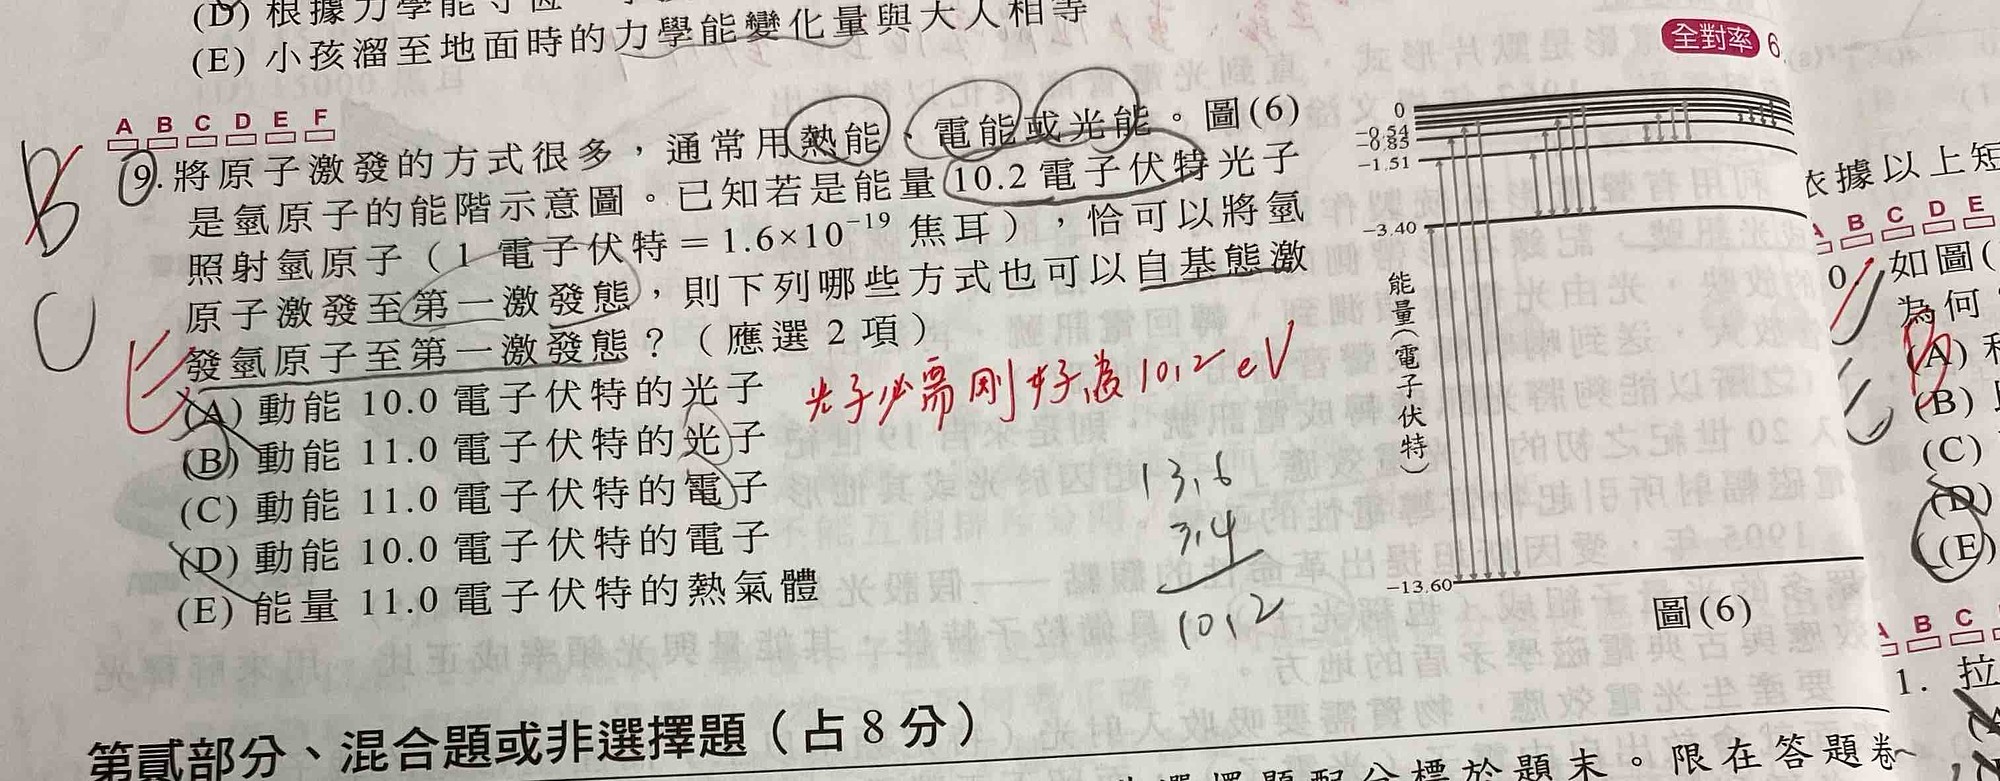 (D) 根據力學能守恆
(E) 小孩溜至地面時的力學能變化量與大人相等
全對率 6
A B C D E F
9. 將原子激發的方式很多，通常用熱能、電能或光能。圖(6)
是氫原子的能階示意圖。已知若是能量 10.2 電子伏特光子
照射氫原子（1 電子伏特＝1.6×10⁻¹⁹ 焦耳），恰可以將氫
原子激發至第一激發態，則下列哪些方式也可以自基態激
發氫原子至第一激發態？（應選 2 項）
(A) 動能 10.0 電子伏特的光子
(B) 動能 11.0 電子伏特的光子
(C) 動能 11.0 電子伏特的電子
(D) 動能 10.0 電子伏特的電子
(E) 能量 11.0 電子伏特的熱氣體
B
C
E
光子必需剛好為10.2 eV
13.6
3.4
10.2
0
-0.54
-0.85
-1.51
-3.40
-13.60
能量(電子伏特)
圖(6)
第貳部分、混合題或非選擇題（占 8 分）
題末。限在答題卷
依據以上短
B C D E
如圖(
為何
(A)
(B)
(C)
(D)
(E)
A B C
1. 拉